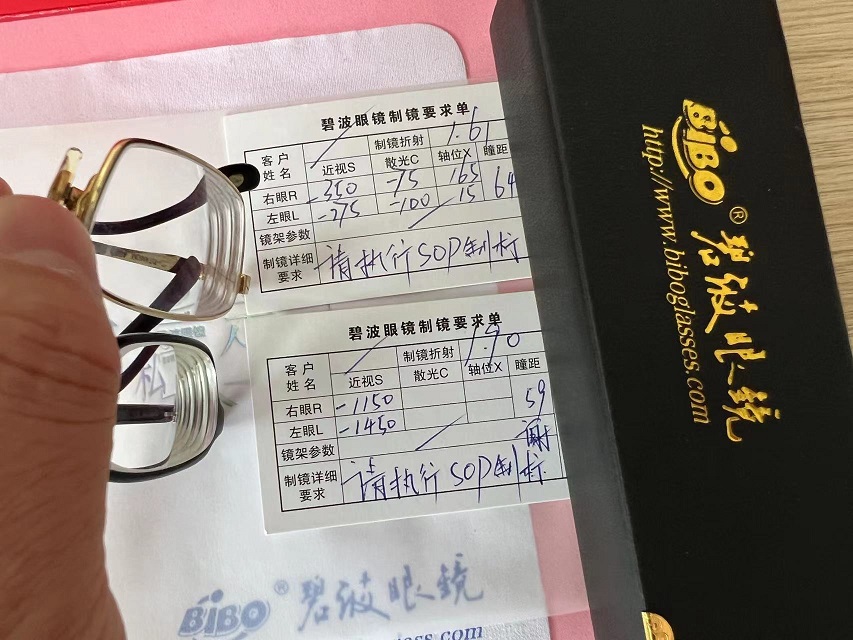 碧波眼镜制镜要求单
客户姓名 制镜折射 1.61
近视S 散光C 轴位X 瞳距
右眼R -350 -75 165 64
左眼L -275 -100 15
镜架参数
制镜详细要求 请执行SOP制标
碧波眼镜制镜要求单
客户姓名 制镜折射 1.70
近视S 散光C 轴位X 瞳距
右眼R -1150 59
左眼L -1450
镜架参数
制镜详细要求 请执行SOP制标
BiBO® 碧波眼镜
BiBO® 碧波眼镜
http://www.biboglasses.com